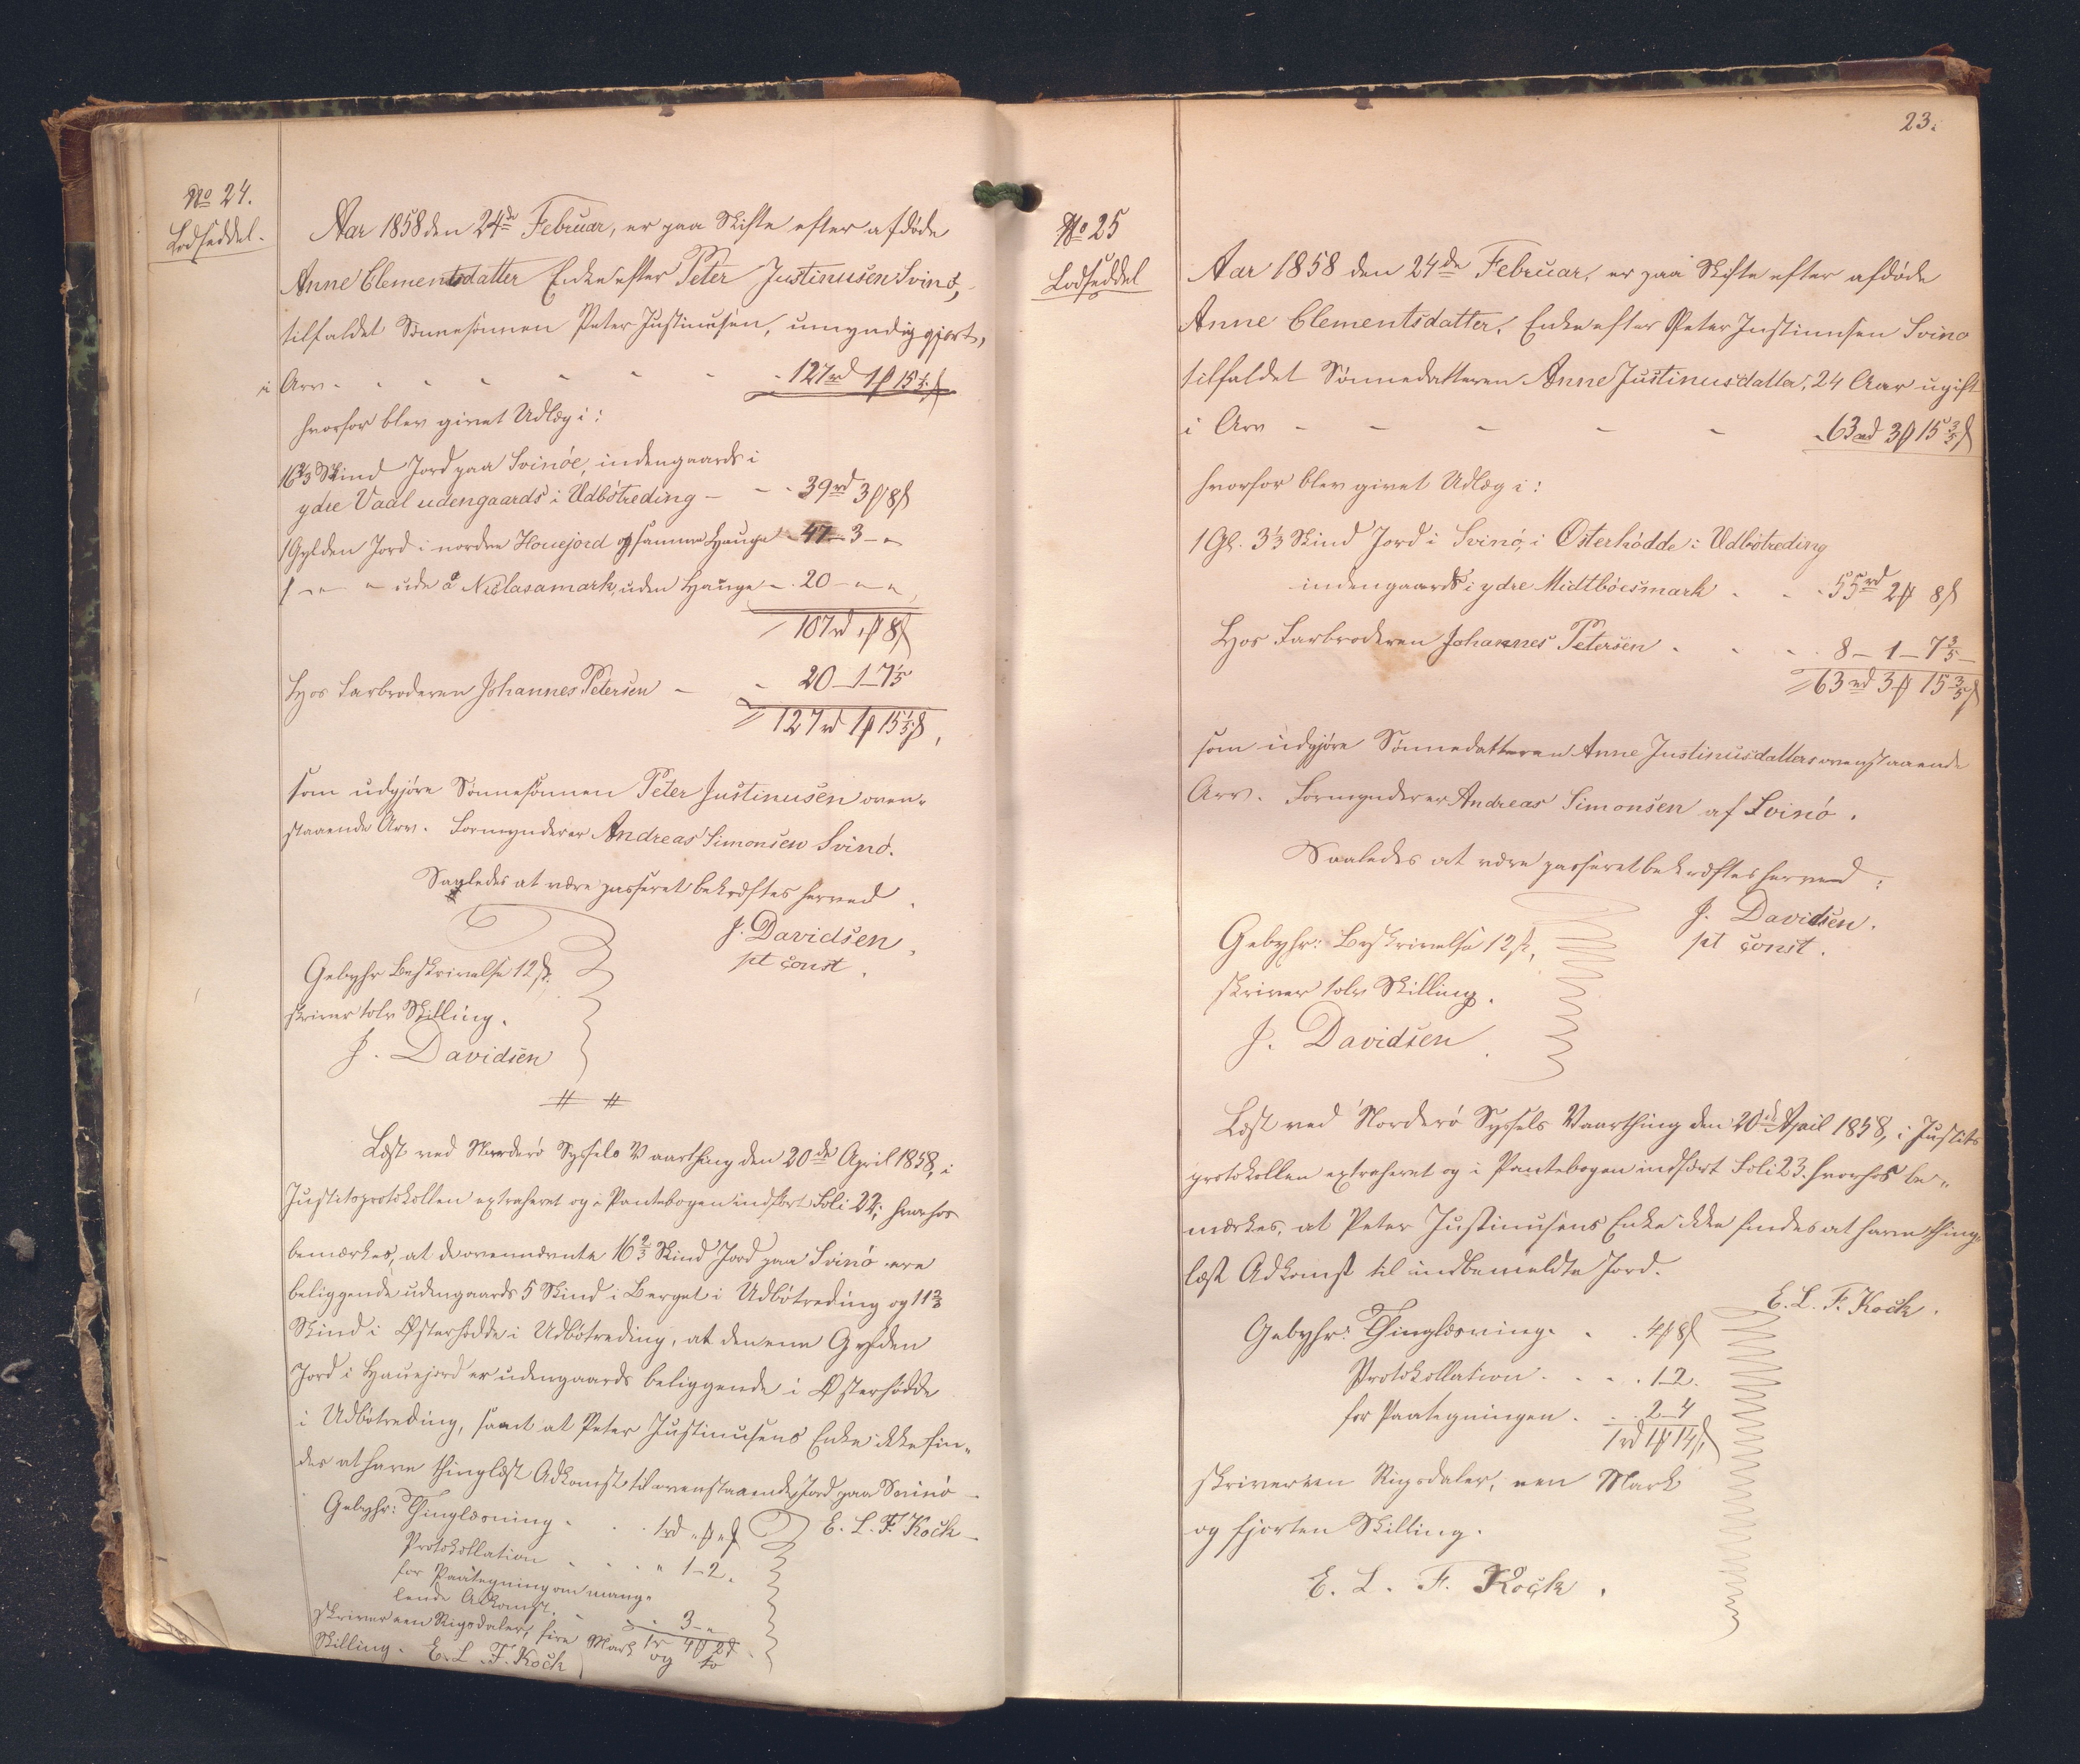 No 24.
Lodseddel.
Aar 1858 den 24de Februar, er paa Skifte efter afdøde
Anne Clementsdatter Enke efter Peter Justinusen Svinø,
tilfaldet Sønnesønnen Peter Justinusen, umyndiggjort,
i Arv - - - - - - - 127rd 1 ₰ 15 1/5 ß
hvorfor blev givet Udlæg i:
16 2/3 Skind Jord paa Svinöe, indengaards i
ydre Vaal udengaards i Udbötreding - - - 39rd 3 ₰ 8 ß
1 Gylden Jord i nordre Houejord og samme Hauge 47 - 3 - "
1 - " - " ude å Niclasamark, uden Hauge - . 20 - " - "
107rd " ₰ 8 ß
Hos Farbroderen Johannes Petersen - - 20 - 1 - 7 1/5
127rd 1 ₰ 15 1/5 ß,
som udgjøre Sønnesønnen Peter Justinusen oven-
staaende Arv. Formynder er Andreas Simonsen Svinø.
Saaledes at være passeret bekræftes herved.
J. Davidsen,
pt const.
Gebyhr Beskrivelse 12 ß.
skriver tolv Skilling.
J. Davidsen
# #
Læst ved Norderø Syssels Vaarthing den 20de April 1858, i
Justitsprotokollen extraheret og i Pantebogen indført Foli 22; hvorhos
bemærkes, at de ovennævnte 16 2/3 Skind Jord paa Svinø ere
beliggende udengaards 5 Skind i Berget i Udbötreding og 11 2/3
Skind i Østerhödde i Udbötreding, at den ene Gylden
Jord i Hauejord er udengaards beliggende i Østerhödde
i Udbötreding, samt at Peter Justinusens Enke ikke fin-
des at have thinglæst Adkomst til ovenstaaende Jord paa Svinø -
E. L. F. Koch -
Gebyhr: Thinglæsning . . . 1rd " ₰ " ß
Protokollation . . . . " 1 - 2.
for Paategning om mang-
lende Adkomst. . . . 3 - "
1r 4 ₰ 2 ß
skriver een Rigsdaler, fire Mark og to
Skilling. E. L. F. Koch
23.
No 25
Lodseddel
Aar 1858 den 24de Februar, er paa Skifte efter afdøde
Anne Clementsdatter, Enke efter Peter Justinusen Svino
tilfaldet Sønnedatteren Anne Justinusdatter, 24 Aar ugift
i Arv - - - - - 63rd 3 ₰ 15 3/5 ß
hvorfor blev givet Udlæg i:
1 Gl. 3 1/3 Skind Jord i Svinø, i Österhödde i Udbötreding
indengaards i ydre Midtböesmark . . . 55rd 2 ₰ 8 ß
Hos Farbroderen Johannes Petersen . . . . 8 - 1 - 7 3/5 -
63rd 3 ₰ 15 3/5 ß
som udgjøre Sønnedatteren Anne Justinusdatters ovenstaaende
Arv. Formynder er Andreas Simonsen af Svinö.
Saaledes at være passeret bekræftes herved:
J. Davidsen.
pt const.
Gebyhr: Beskrivelse 12 ß,
skriver tolv Skilling.
J. Davidsen
Læst ved Norderø Syssels Vaarthing den 20de April 1858, i Justits
protokollen extraheret og i Pantebogen indført Foli 23. hvorhos be-
mærkes, at Peter Justinusens Enke ikke findes at have thing-
læst Adkomst til indbemeldte Jord.
E. L. F. Koch.
Gebyhr: Thinglæsning . . . 4 ₰ 8 ß
Protokollation . . . . 1 - 2.
for Paategningen . . . 2 - 4
1rd 1 ₰ 14 ß
skriver een Rigsdaler, een Mark
og fjorten Skilling.
E. L. F. Koch.